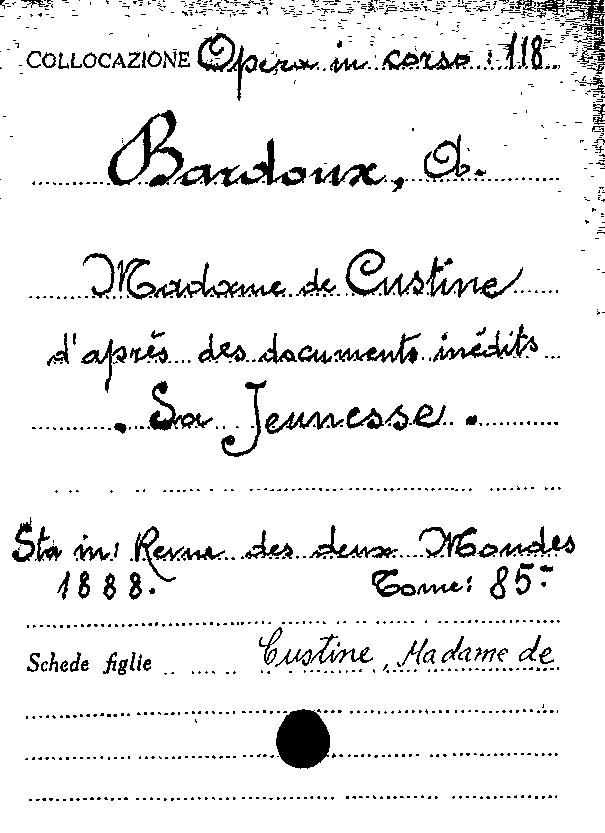 COLLOCAZIONE Opera in corso: 118
Bardoux, A.
Madame de Custine
d'après des documents inédits
. Sa Jeunesse .
Sta in: Revue des deux Mondes
1888. Tome: 85-
Schede figlie Custine, Madame de